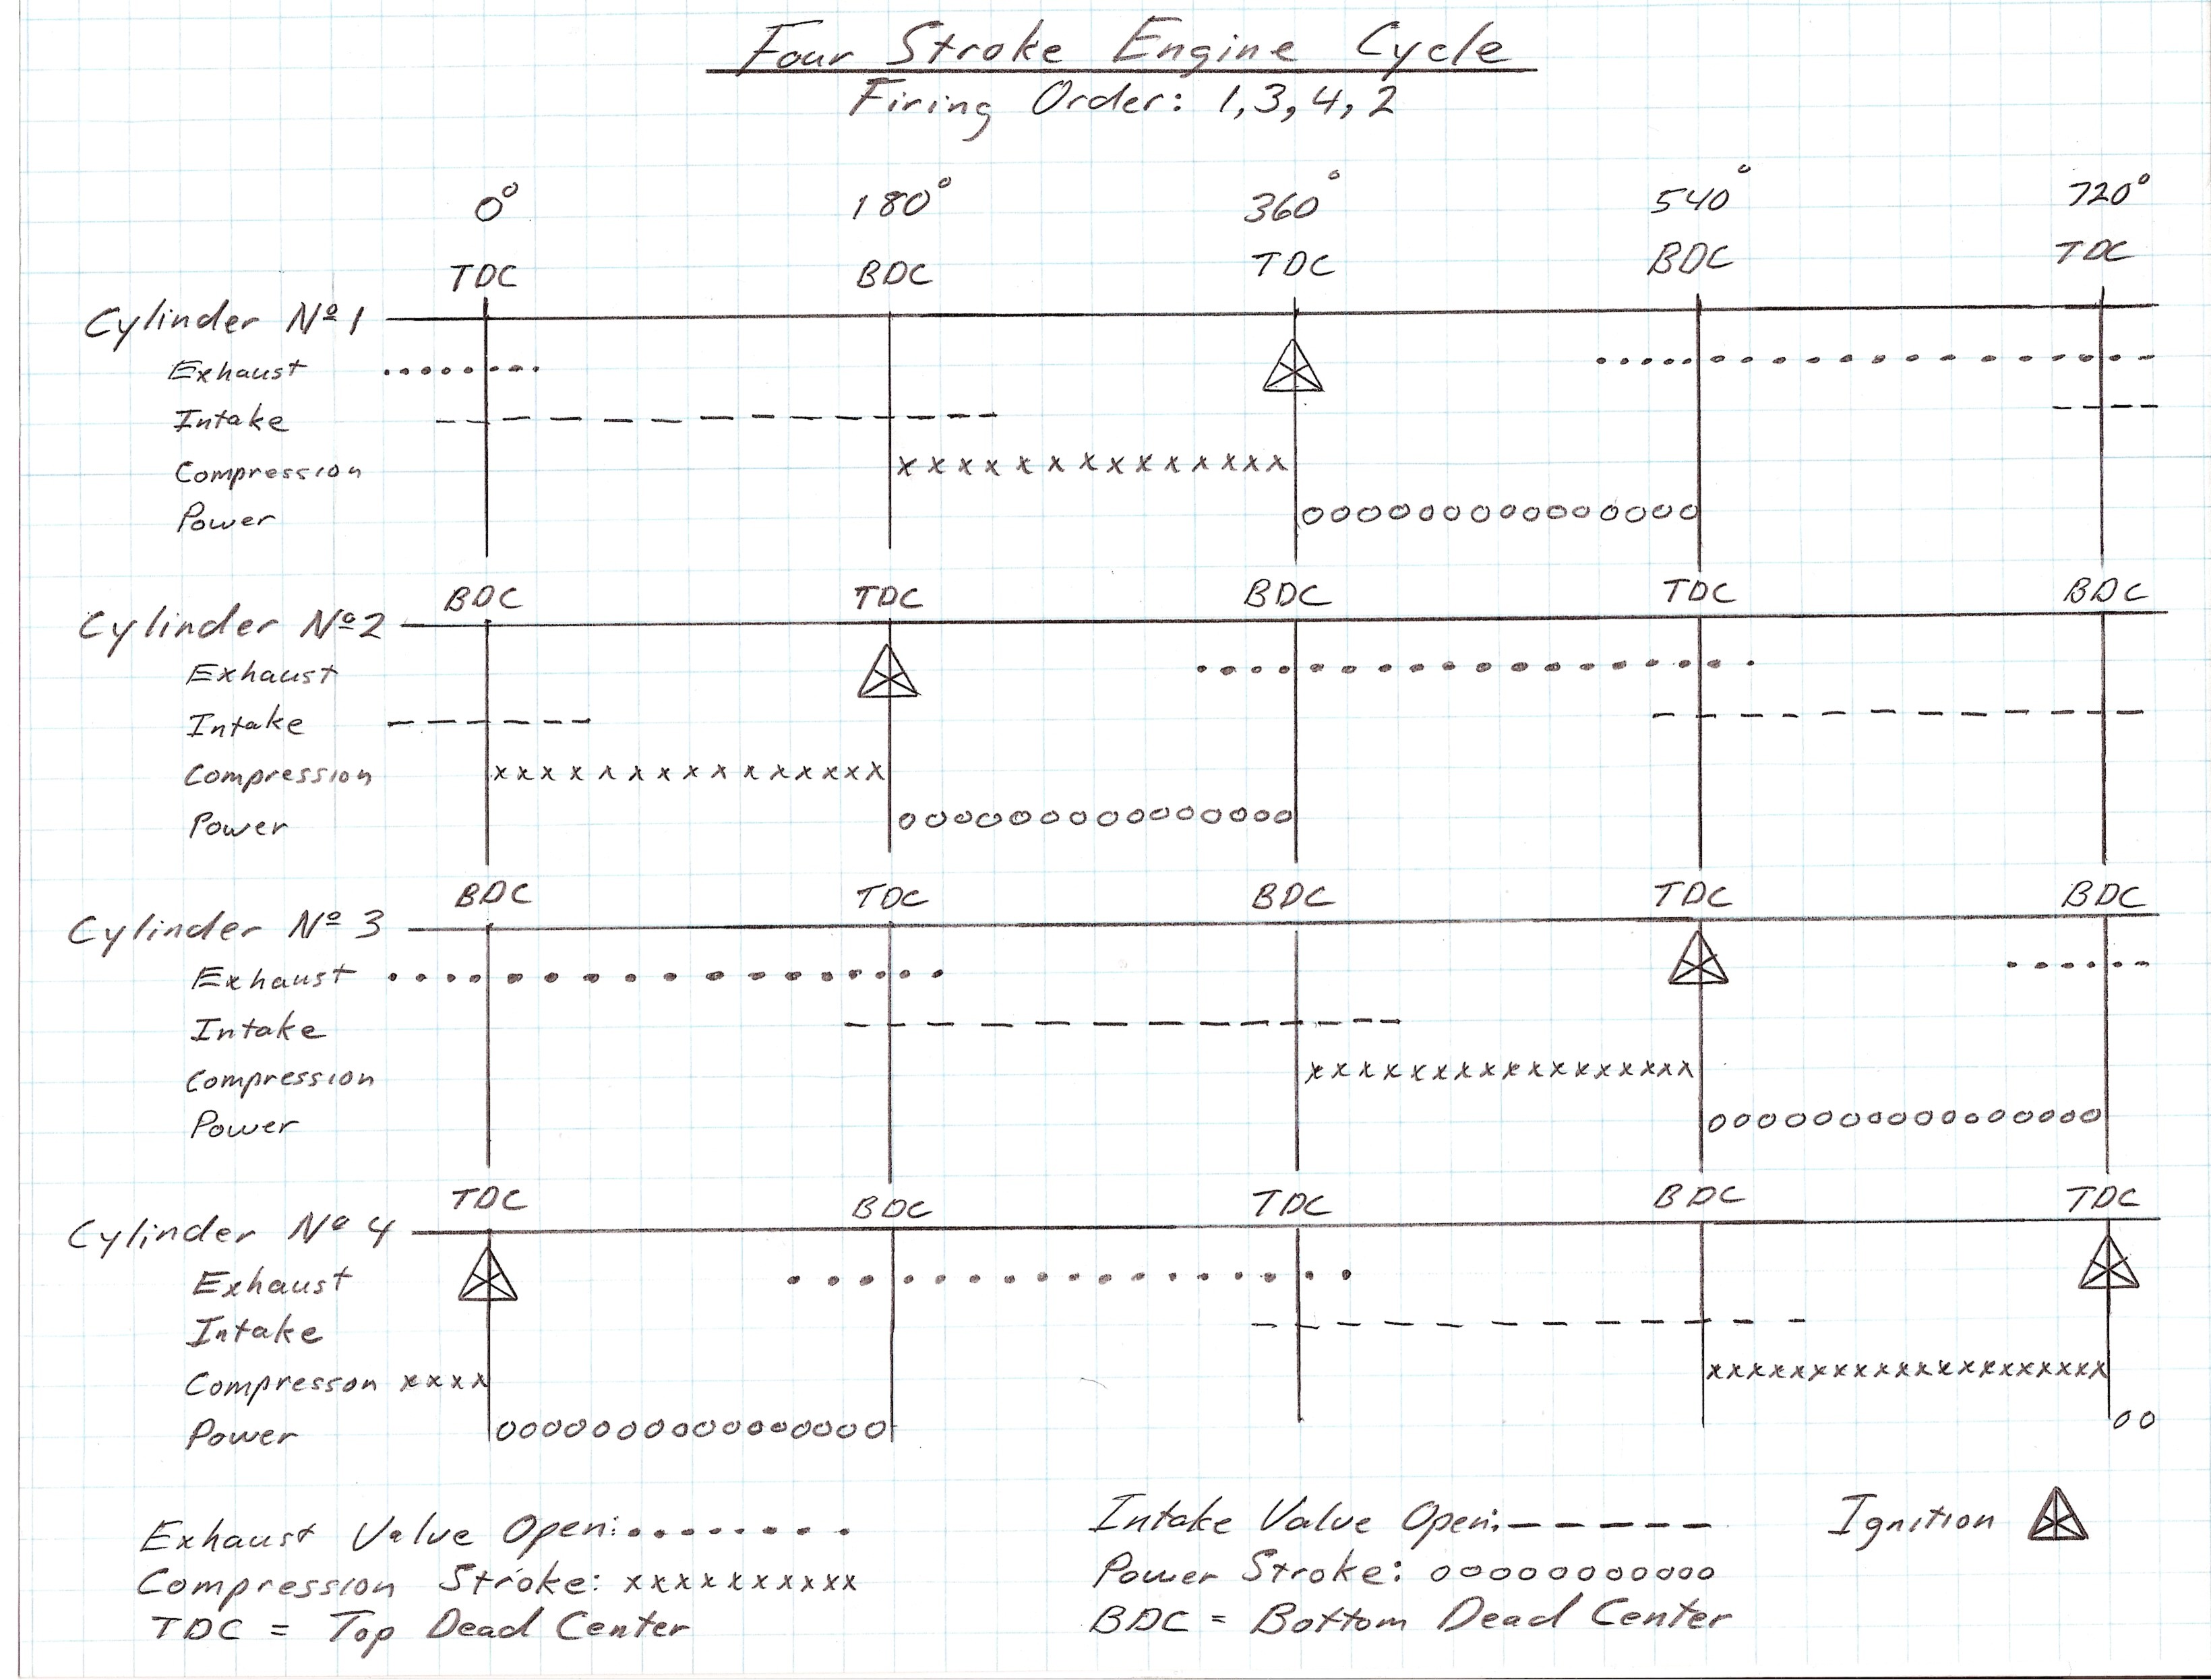 Four Stroke Engine Cycle
Firing Order: 1,3,4,2
0° 180° 360° 540° 720°
TDC BDC TDC BDC TDC
Cylinder Nº 1
Exhaust
Intake
Compression
Power
BDC TDC BDC TDC BDC
Cylinder Nº 2
Exhaust
Intake
Compression
Power
BDC TDC BDC TDC BDC
Cylinder Nº 3
Exhaust
Intake
Compression
Power
TDC BDC TDC BDC TDC
Cylinder Nº 4
Exhaust
Intake
Compresson
Power
Exhaust Valve Open: Intake Valve Open: Ignition
Compression Stroke: xxxxxxxxxx Power Stroke: ooooooooooo
TDC = Top Dead Center BDC = Bottom Dead Center